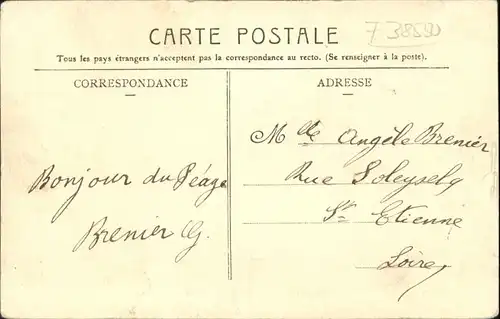 7 38590
CARTE POSTALE
Tous les pays étrangers n'acceptent pas la correspondance au recto. (Se renseigner à la poste).
CORRESPONDANCE
Bonjour du Péage
Brenier G.
ADRESSE
Mlle Angèle Brenier
Rue Soleysel
St Etienne
Loire